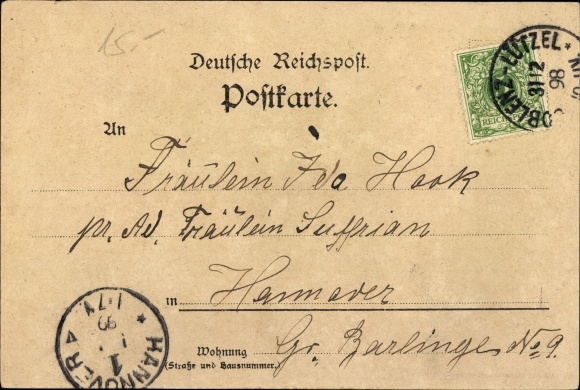 15.-
Deutsche Reichspost.
Postkarte.
COBLENZ-LÜTZEL *
31 12
98
REICH
An
Fräulein Ida Hook
pr. Ad. Fräulein Suffrian
in Hannover
Wohnung Gr. Barlinge No 9.
(Straße und Hausnummer.)
* HANNOVER 4
1
1
99